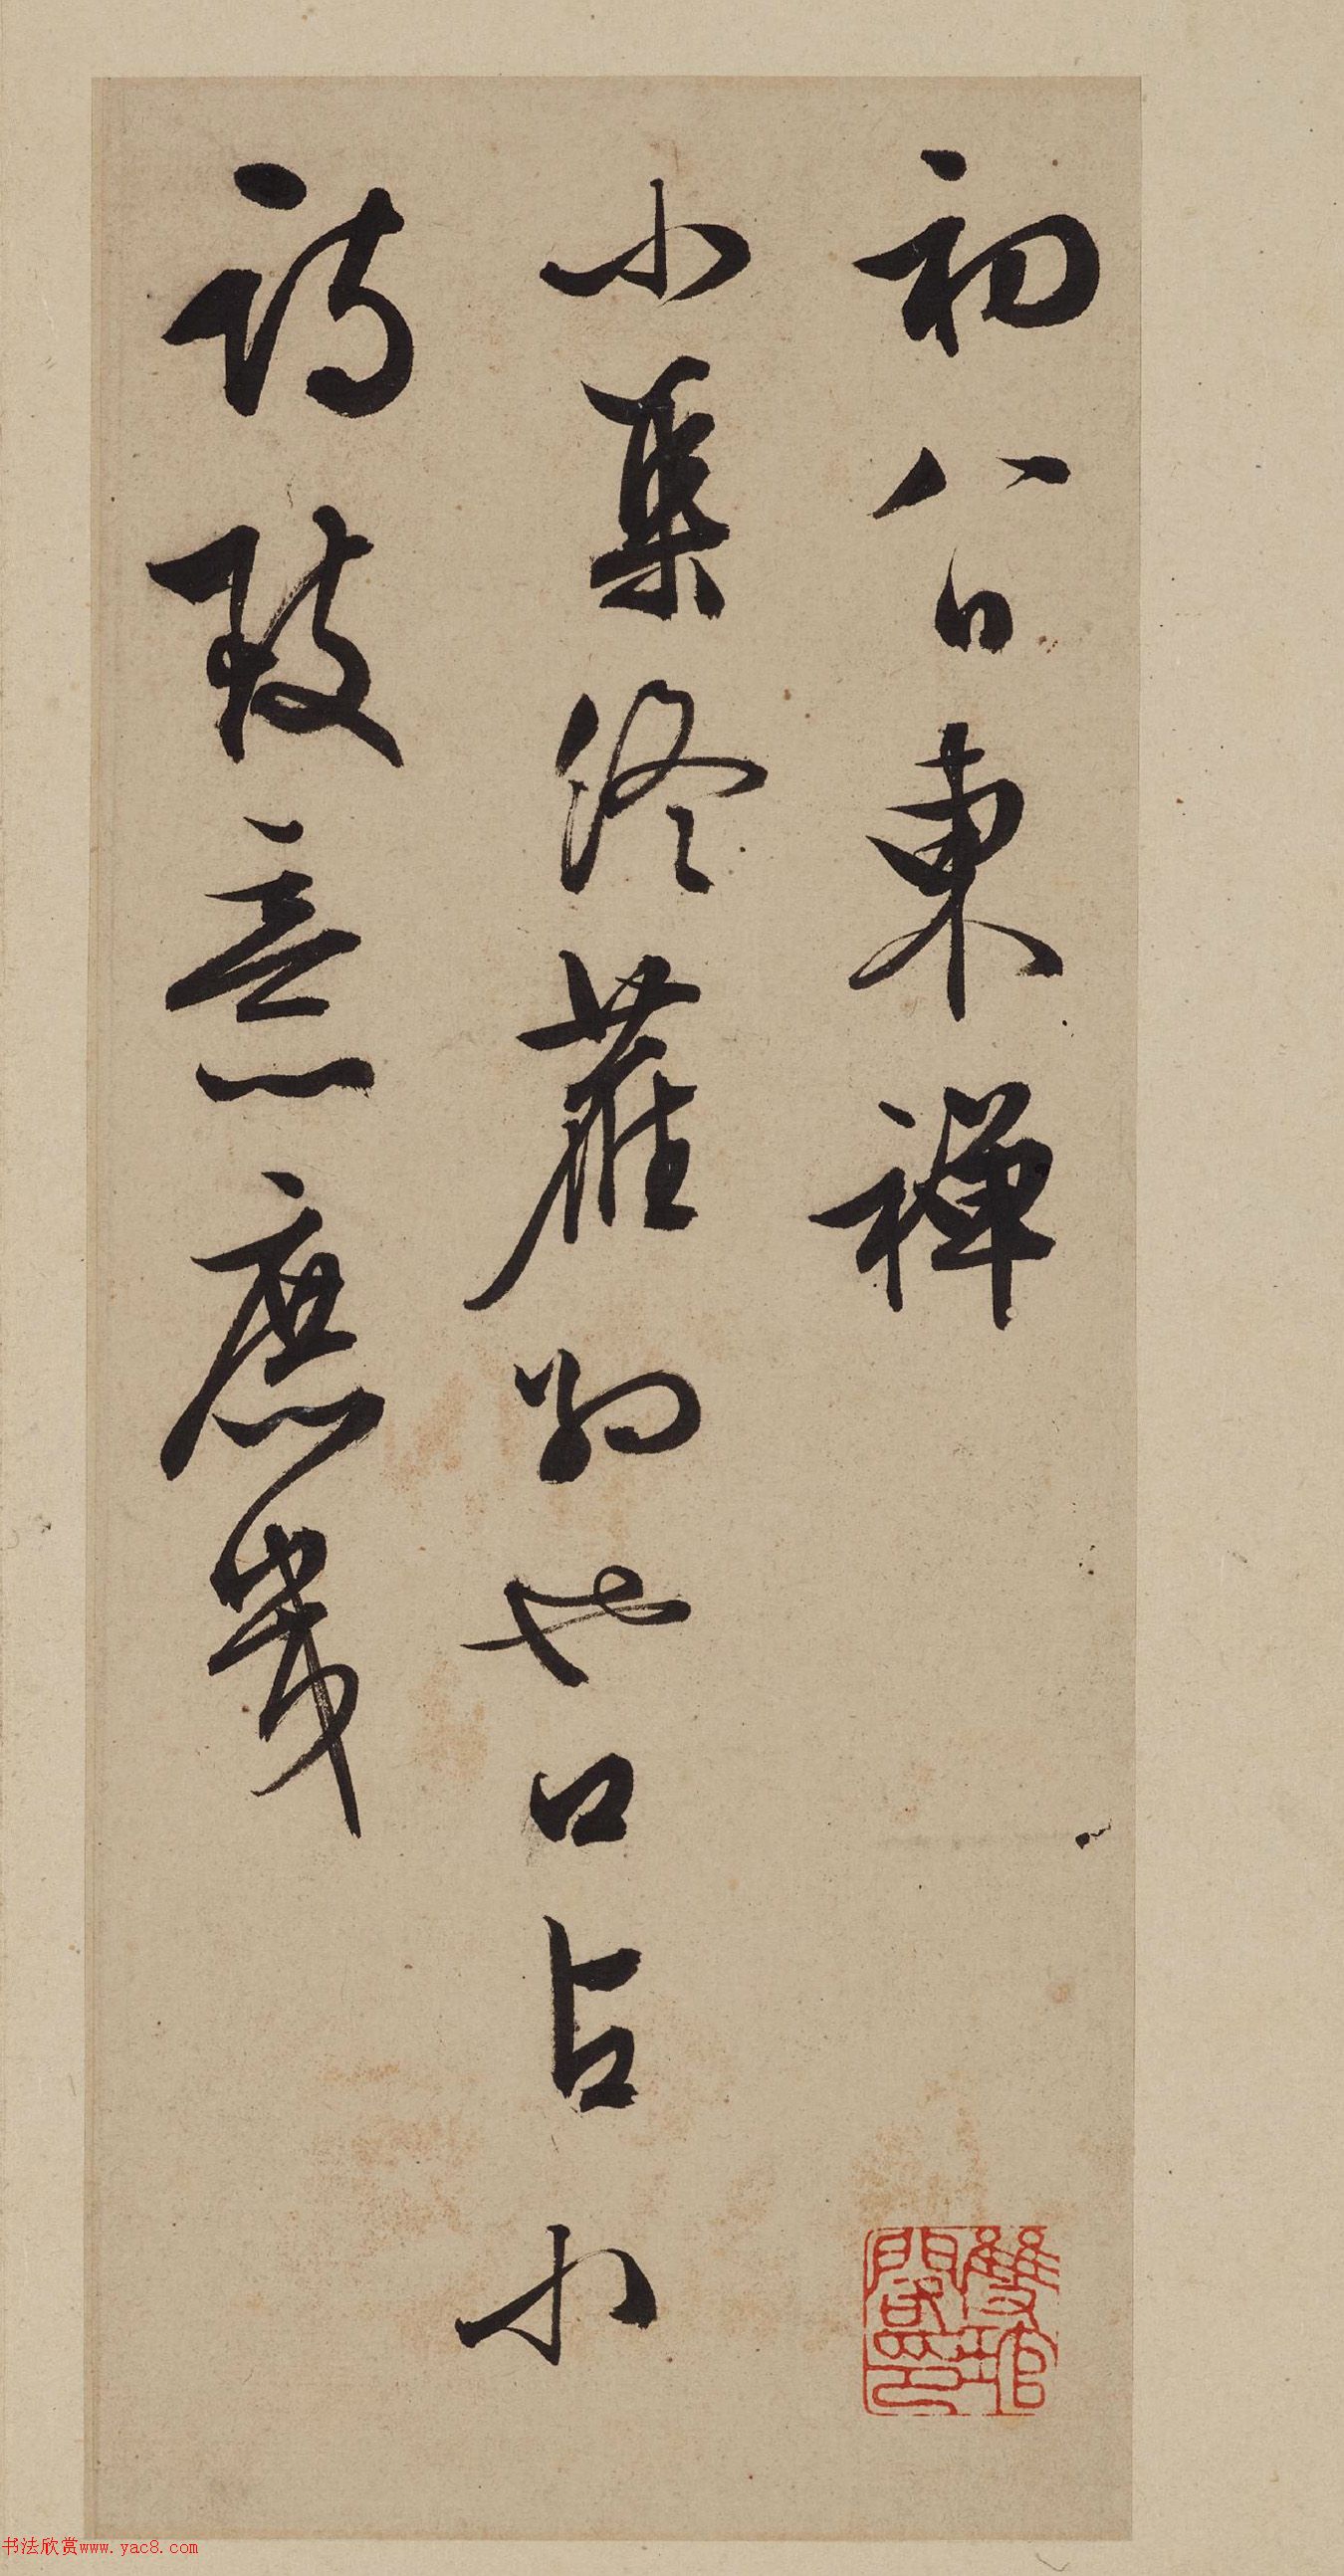 初八日東禪
小集終舊約也口占小
詩致意庶幾
書法欣赏www.yac8.com